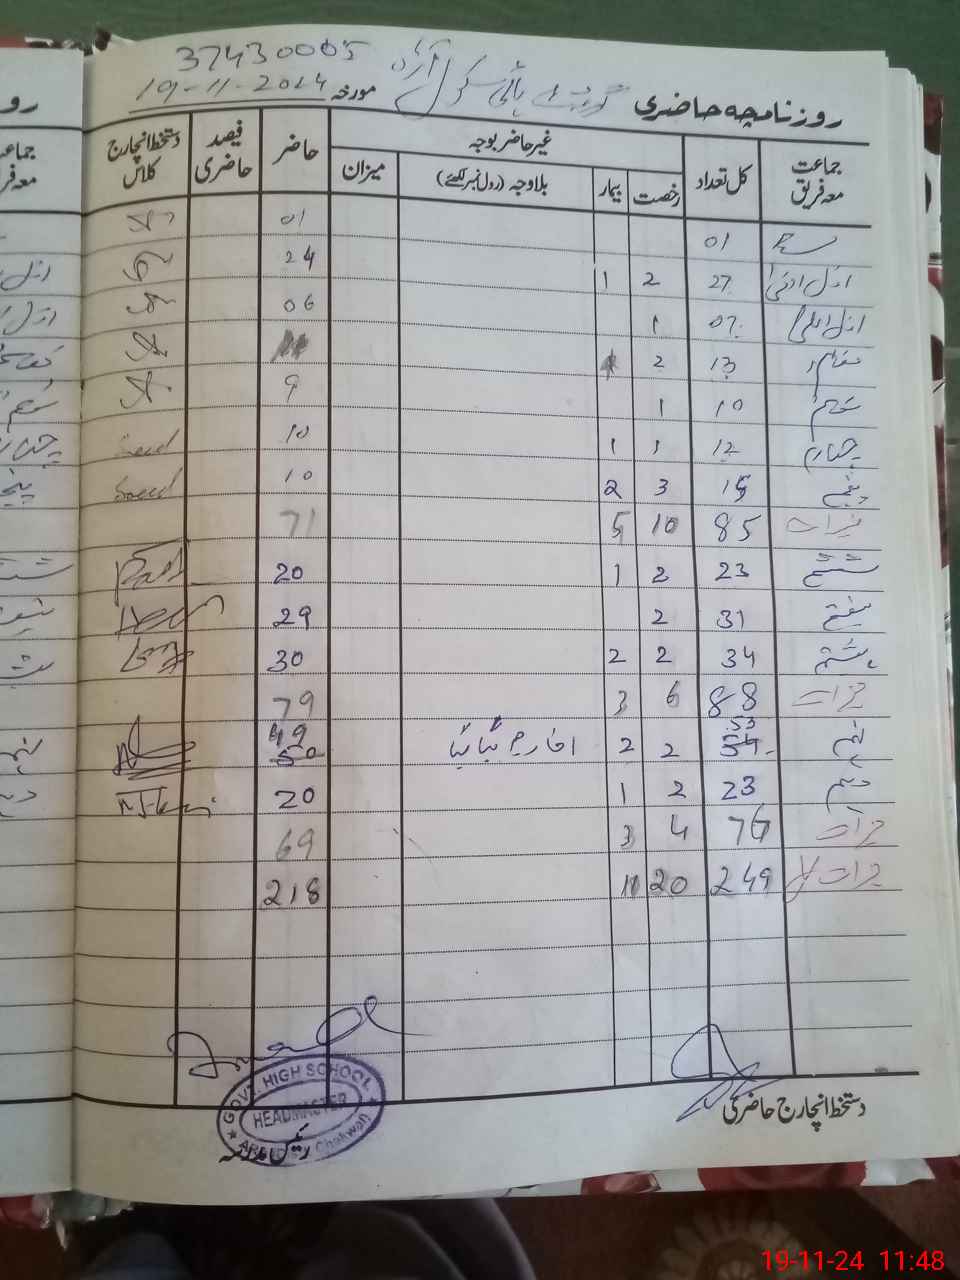 37430005
روزنامچہ حاضری گورنمنٹ ہائی سکول آڑہ مورخہ 19-11-2024
جماعت معہ فریق کل تعداد غیر حاضر بوجہ حاضر فیصد حاضری دستخط انچارج کلاس
رخصت بیمار بلاوجہ (رول نمبر لکھئے) میزان
01 01
اول ادنیٰ 27 2 1 24
اول اعلیٰ 07 1 06
13 2
10 1 9
چہارم 12 1 1 10 Saeed
پنجم 15 3 2 10 Saeed
میزان 85 10 5 71
ششم 23 2 1 20
ہفتم 31 2 29
ہشتم 34 2 2 30
میزان 88 6 3 79
نہم 53 2 2 49
دہم 23 2 1 20
میزان 76 4 3 69
میزان کل 249 20 11 218
دستخط انچارج حاضری
GOVT. HIGH SCHOOL
HEADMASTER
Chakwal
رئیس مدرسہ
19-11-24 11:48